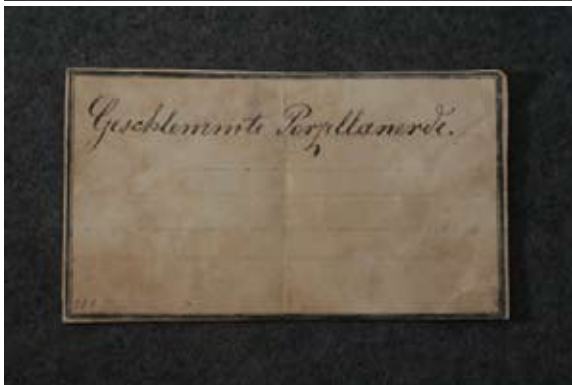 Geschlemmte Porzellanerde.